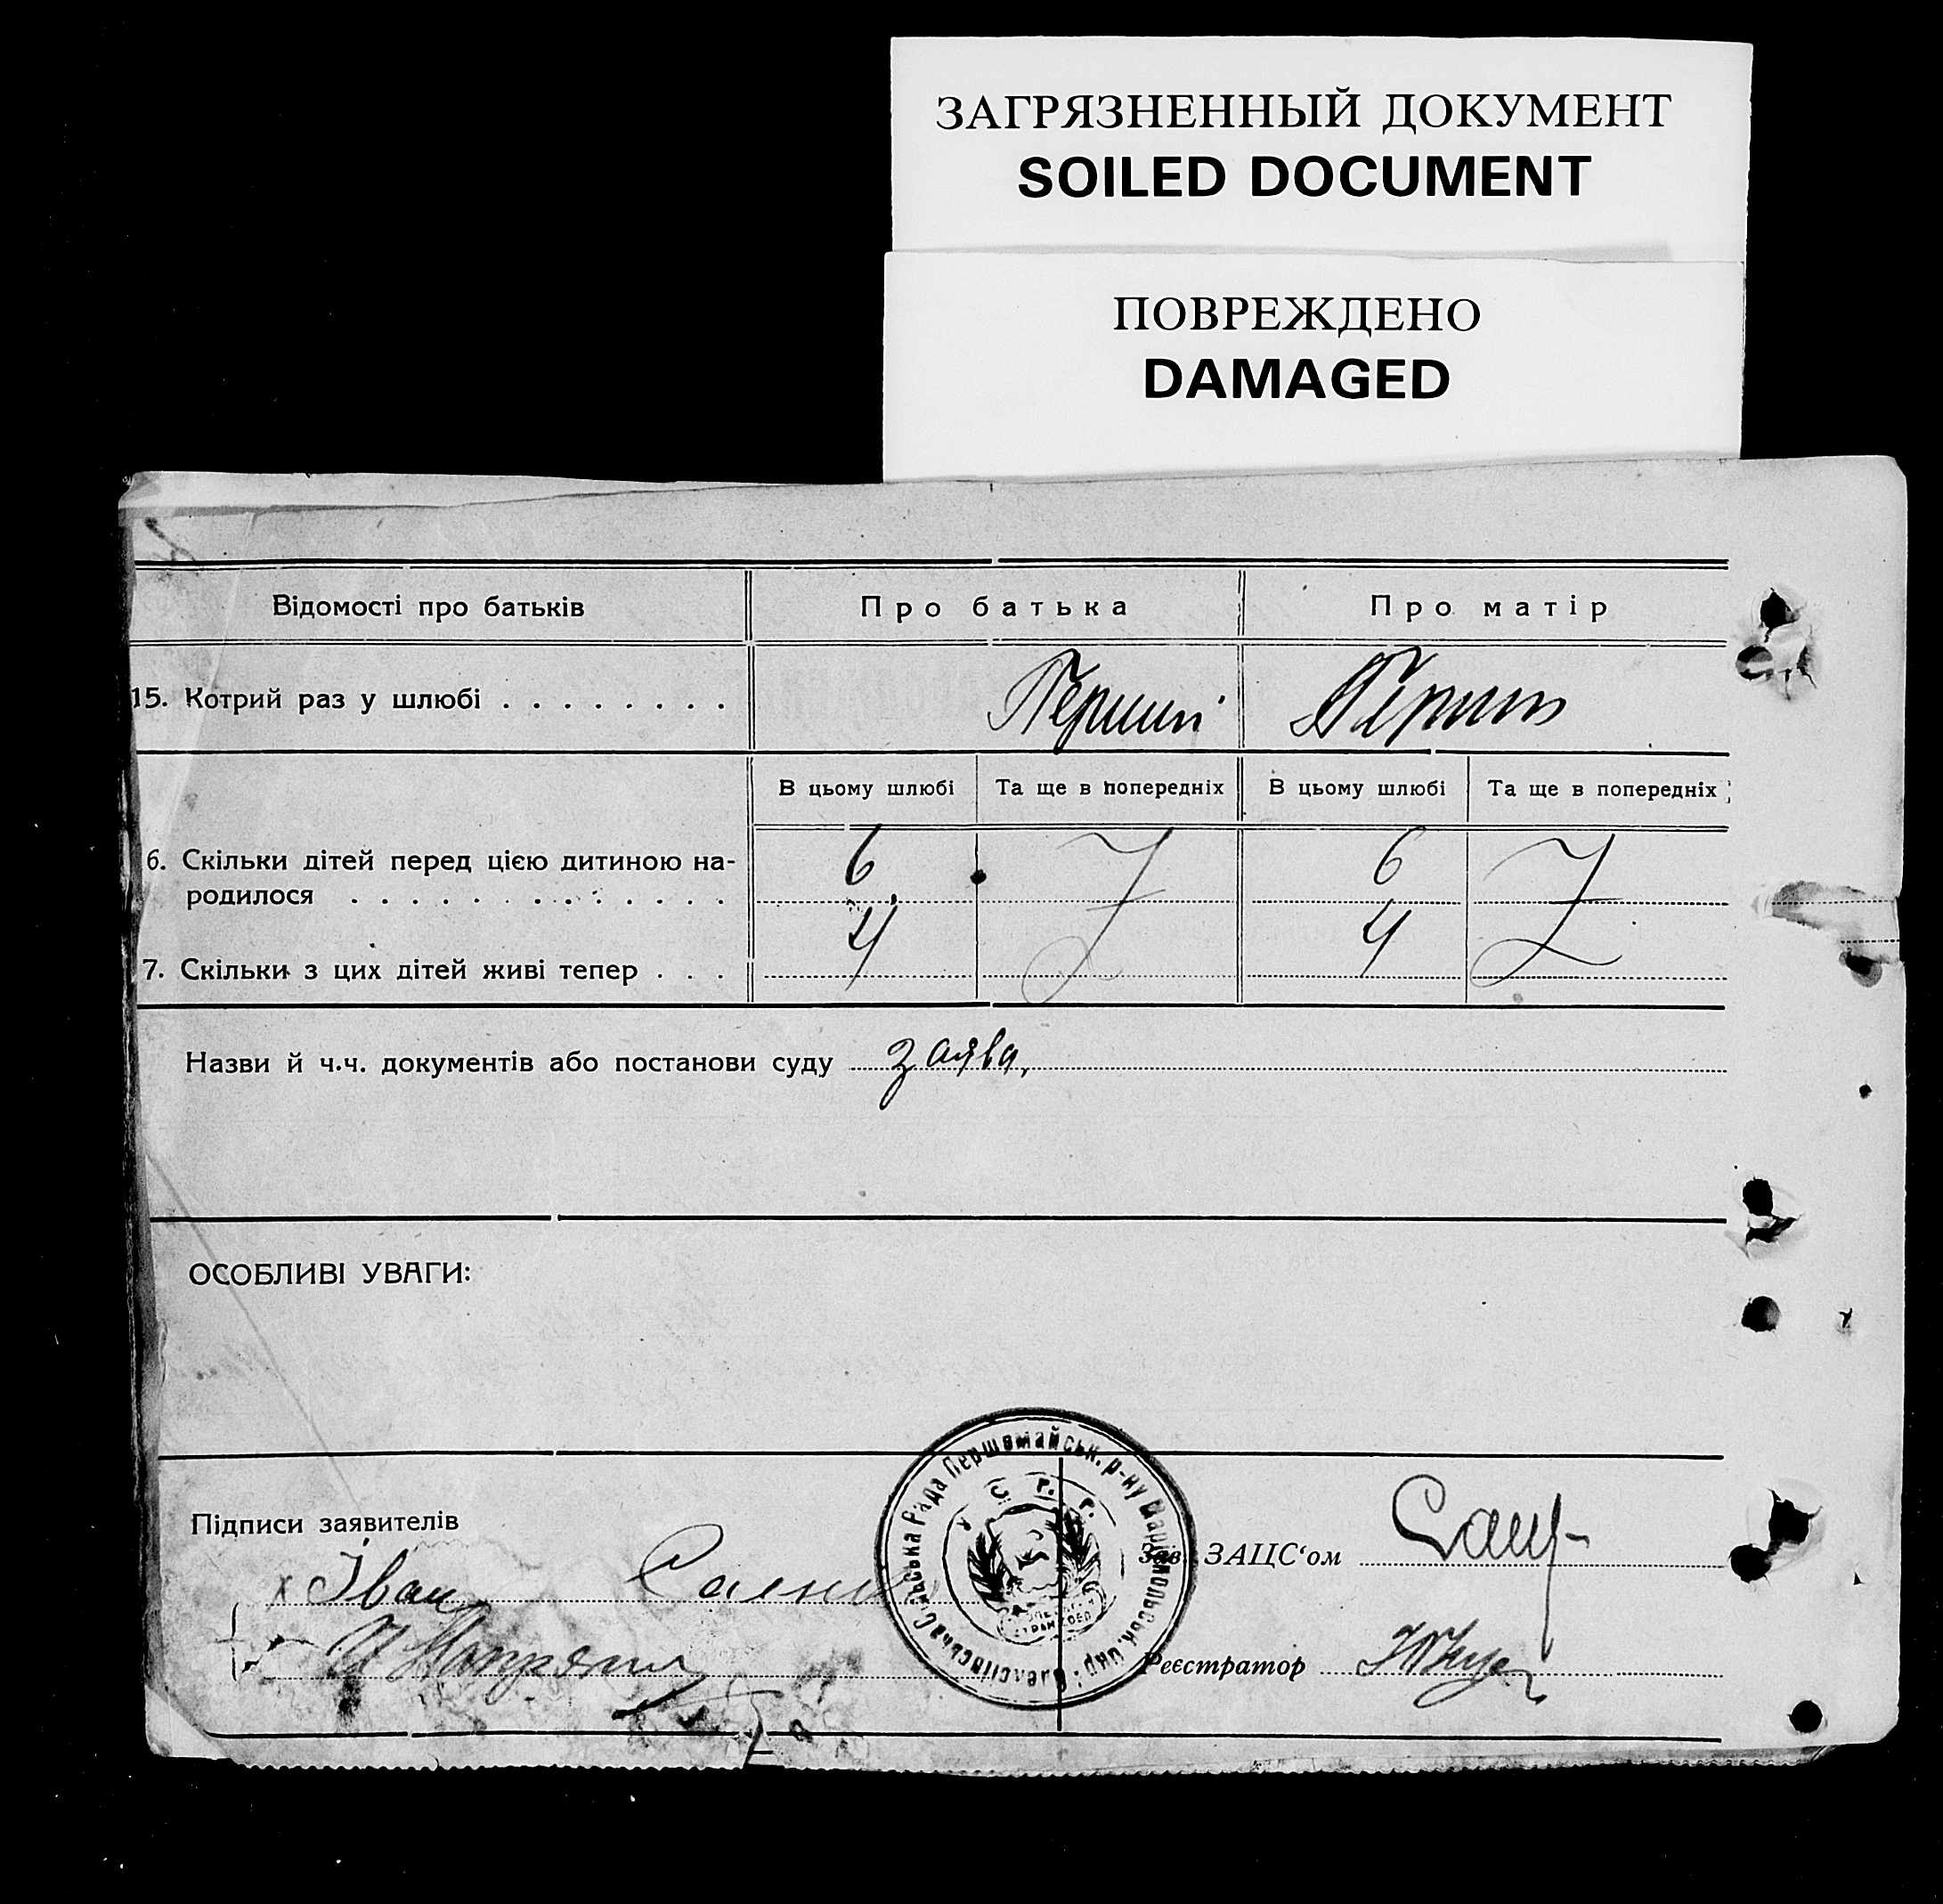 ЗАГРЯЗНЕННЫЙ ДОКУМЕНТ
SOILED DOCUMENT
ПОВРЕЖДЕНО
DAMAGED
Відомості про батьків Про батька Про матір
15. Котрий раз у шлюбі . . . . . . . . Перший
В цьому шлюбі Та ще в попередніх В цьому шлюбі Та ще в попередніх
6. Скільки дітей перед цією дитиною на-
родилося . . . . . . . . . . . . . . 6 6
7. Скільки з цих дітей живі тепер . . . 4 4
Назви й ч.ч. документів або постанови суду заява,
ОСОБЛИВІ УВАГИ:
Сільська Рада Першомайськ. р-ну Маріюпольськ. Окр.
Підписи заявителів
Зав. ЗАЦС‘ом
х Іван
Реєстратор